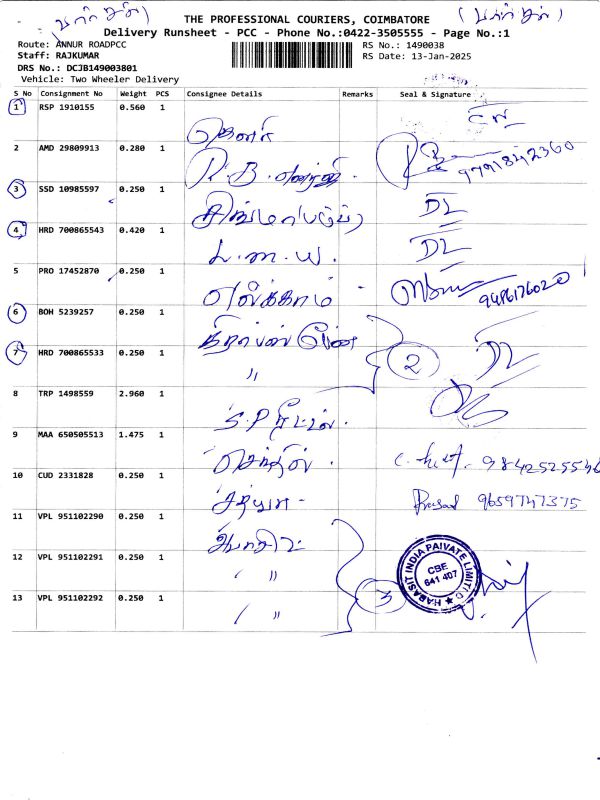 (பார்சல்)
(பார்சல்)
THE PROFESSIONAL COURIERS, COIMBATORE
Delivery Runsheet - PCC - Phone No.:0422-3505555 - Page No.:1
Route: ANNUR ROADPCC
RS No.: 1490038
Staff: RAJKUMAR
RS Date: 13-Jan-2025
DRS No.: DCJB149003801
Vehicle: Two Wheeler Delivery
S No Consignment No Weight PCS Consignee Details Remarks Seal & Signature
1 RSP 1910155 0.560 1
2 AMD 29809913 0.280 1 R.B. 9791842360
3 SSD 10985597 0.250 1 DL
4 HRD 700865543 0.420 1 L.M.W. DL
5 PRO 17452870 0.250 1 9486176020
6 BOH 5239257 0.250 1
7 HRD 700865533 0.250 1 〃 2 DL
8 TRP 1498559 2.960 1 S.P
9 MAA 650505513 1.475 1 செந்தில். 9842525546
10 CUD 2331828 0.250 1 சத்யா - Prasad 9659747375
11 VPL 951102290 0.250 1
12 VPL 951102291 0.250 1 〃
13 VPL 951102292 0.250 1 〃 3
HABASIT INDIA PAIVATE LIMITED
CBE
641 407